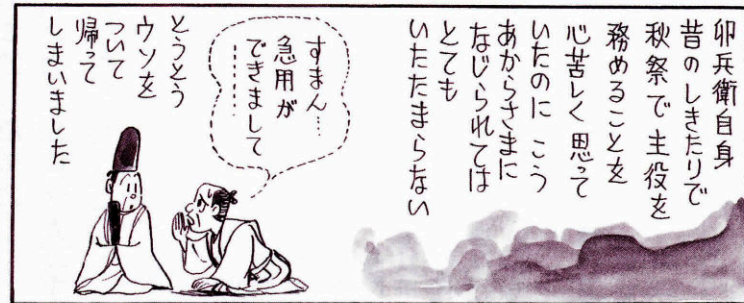 卯兵衛自身
昔のしきたりで
秋祭で主役を
務めることを
心苦しく思って
いたのに こう
あからさまに
なじられては
とても
いたたまらない
すまん…
急用が
できまして
………
とうとう
ウソを
ついて
帰って
しまいました